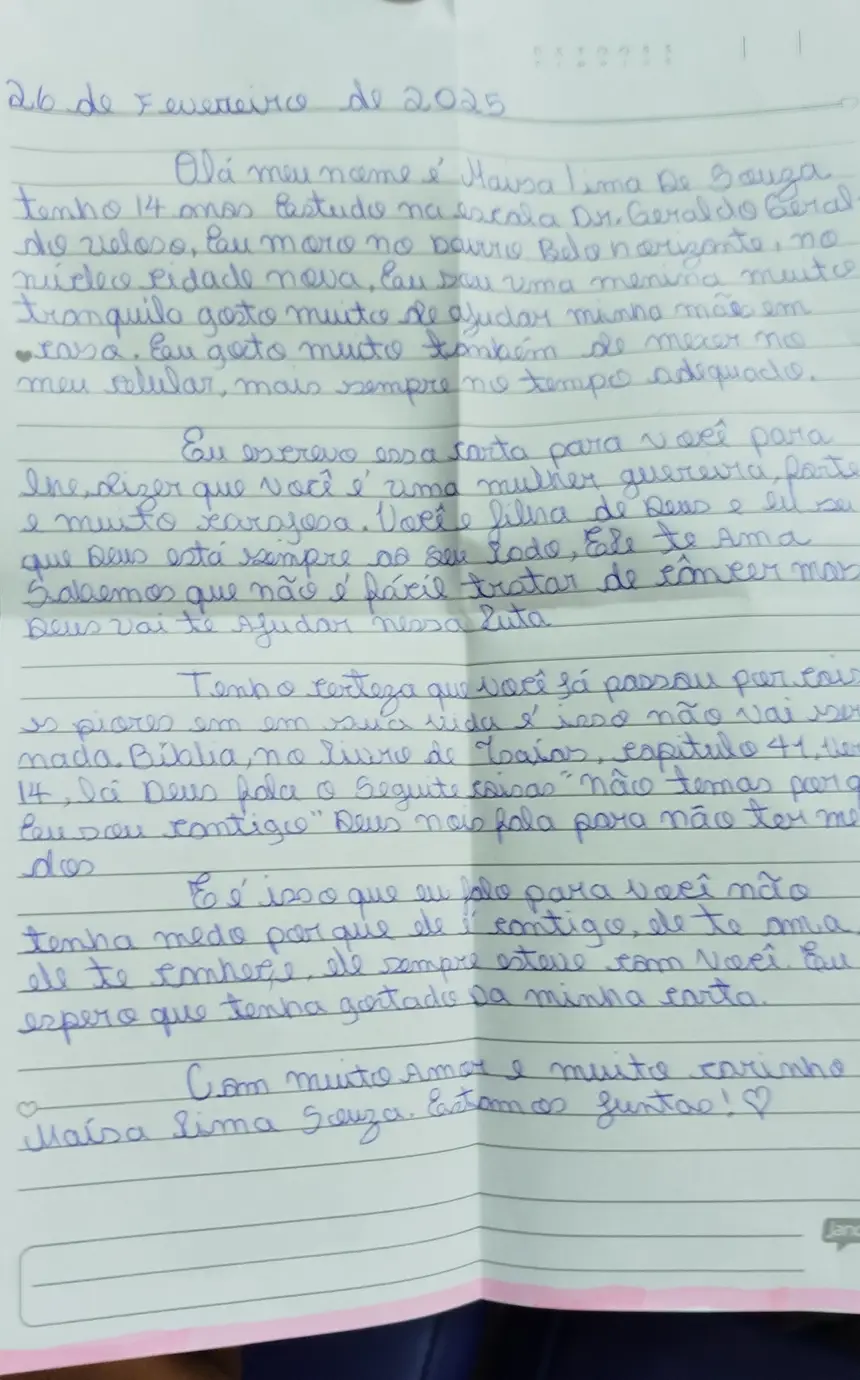 26 de Fevereiro de 2025
Olá meu nome é Maysa lima De Souza
tenho 14 anos Estudo na escola Dr. Geraldo Geral-
do veloso, Eu moro no bairro Belo horizonte, no
núcleo cidade nova, Eu sou uma menina muito
tranquilo gosto muito de ajudar minha mãe em
casa. Eu gosto muito também de mexer no
meu celular, mais sempre no tempo adequado.
Eu escrevo essa carta para você para
lhe, dizer que você é uma mulher guerreira, forte
e muito corajosa. Você é filha de Deus e eu sei
que Deus está sempre ao seu lado, Ele te Ama
Sabemos que não é fácil tratar de câncer mas
Deus vai te Ajudar nessa luta
Tenho certeza que você já passou por coi
s piores em em sua vida é isso não vai ser
nada. Bíblia, no livro de Isaías, capitulo 41, ver
14, lá Deus fala o Seguite coisas "não temas porq
Eu sou contigo" Deus nos fala para não ter me
dos
E é isso que eu falo para você não
tenha medo porque ele é contigo, ele te ama
ele te conhece, ele sempre esteve com você. Eu
espero que tenha gostado da minha carta.
Com muito Amor e muito carinho
Maísa lima Souza. Estamos juntas! ♡
Jand